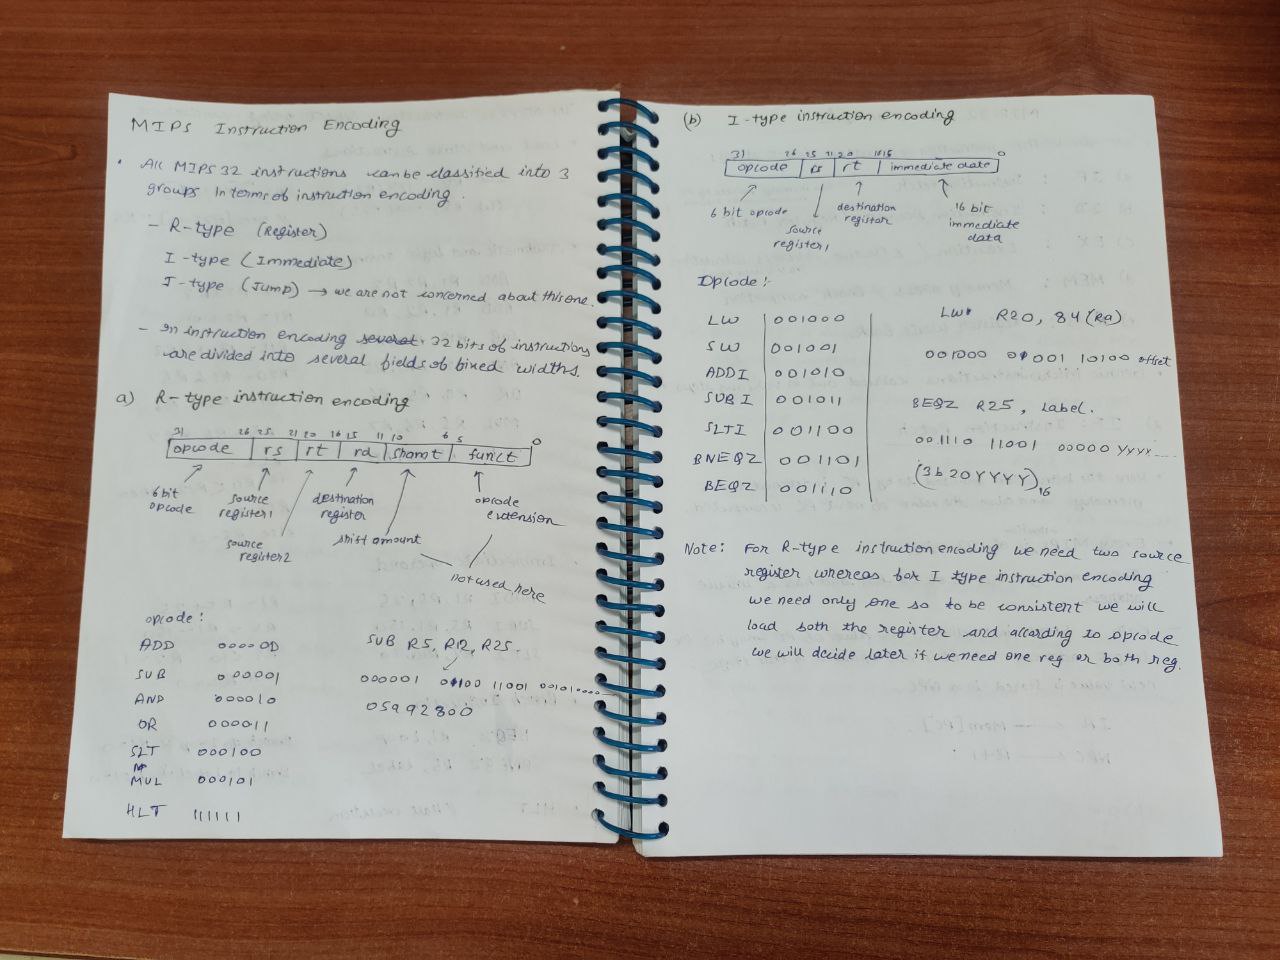 MIPS Instruction Encoding
• All MIPS 32 instructions can be classified into 3
groups in terms of instruction encoding.
- R-type (Register)
I-type (Immediate)
J-type (Jump) → we are not concerned about this one.
- In instruction encoding 32 bits of instructions
are divided into several fields of fixed widths.
a) R-type instruction encoding
31 26 25 21 20 16 15 11 10 6 5 0
opcode rs rt rd shamt funct
6 bit opcode
source register1
source register2
destination register
shift amount
opcode extension
not used here
opcode:
ADD 000000
SUB 000001
AND 000010
OR 000011
SLT 000100
MUL 000101
HLT 111111
SUB R5, R12, R25.
000001 01100 11001 00101 0000
05992800
(b) I-type instruction encoding
31 26 25 21 20 16 15 0
opcode rs rt immediate data
6 bit opcode
source register1
destination register
16 bit immediate data
Opcode:-
LW 001000
SW 001001
ADDI 001010
SUBI 001011
SLTI 001100
BNEQZ 001101
BEQZ 001110
LW R20, 84(R9)
001000 01001 10100 offset
BEQZ R25, Label.
001110 11001 00000 YYYY
(3b20YYYY)16
Note: For R-type instruction encoding we need two source
register whereas for I type instruction encoding
we need only one so to be consistent we will
load both the register and according to opcode
we will decide later if we need one reg or both reg.